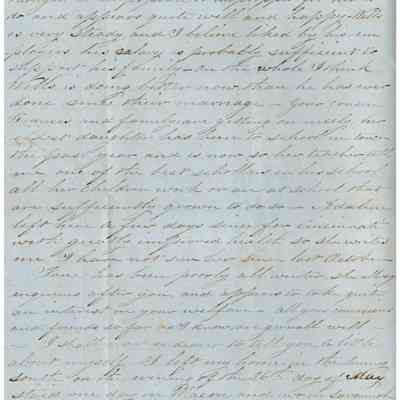 do and appears quite well and happy. Wells
is very steady and I believe liked by his em
ployers his salary is probably sufficient to
support his family. On the whole I think
Wells is doing better now than he has ever
done since their marriage - Your cousin
and family are getting on nicely her
eldest daughter has been to school in town
the past year and is now so her teacher tells
me one of the best scholars in his school
all her children work or are at school that
are sufficiently grown to do so - Adaline
left him a few days since for Cincinnati
with greatly improved health so she writes
me I have not seen her since last October
Jane has been poorly all winter she always
enquires after you and appears to take quite
an interest in your welfare - all your
and friends so far as I know are quite well -
I shall now endeavor to tell you a little
about myself I left my home in the sunny
south on the evening of the 26th day of May
staid one day in Macon and two in Savannah